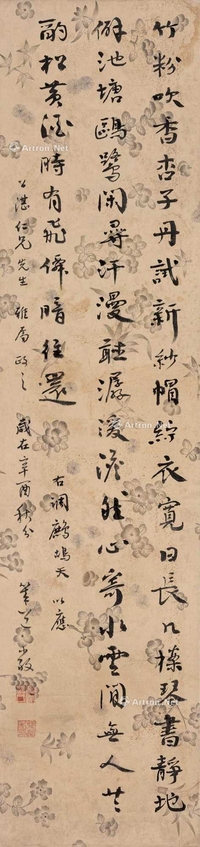 竹粉吹香杏子丹試新紗帽紵衣寬日長几櫋琴書靜地
僻池塘鷗鷺閑尋汗漫聽潺湲澹然心寄水雲閒無人共
酌松黃酒時有飛僊暗往還
古調鷓鴣天 以應
公湛仁兄先生雅屬政之 歲在辛酉秋分